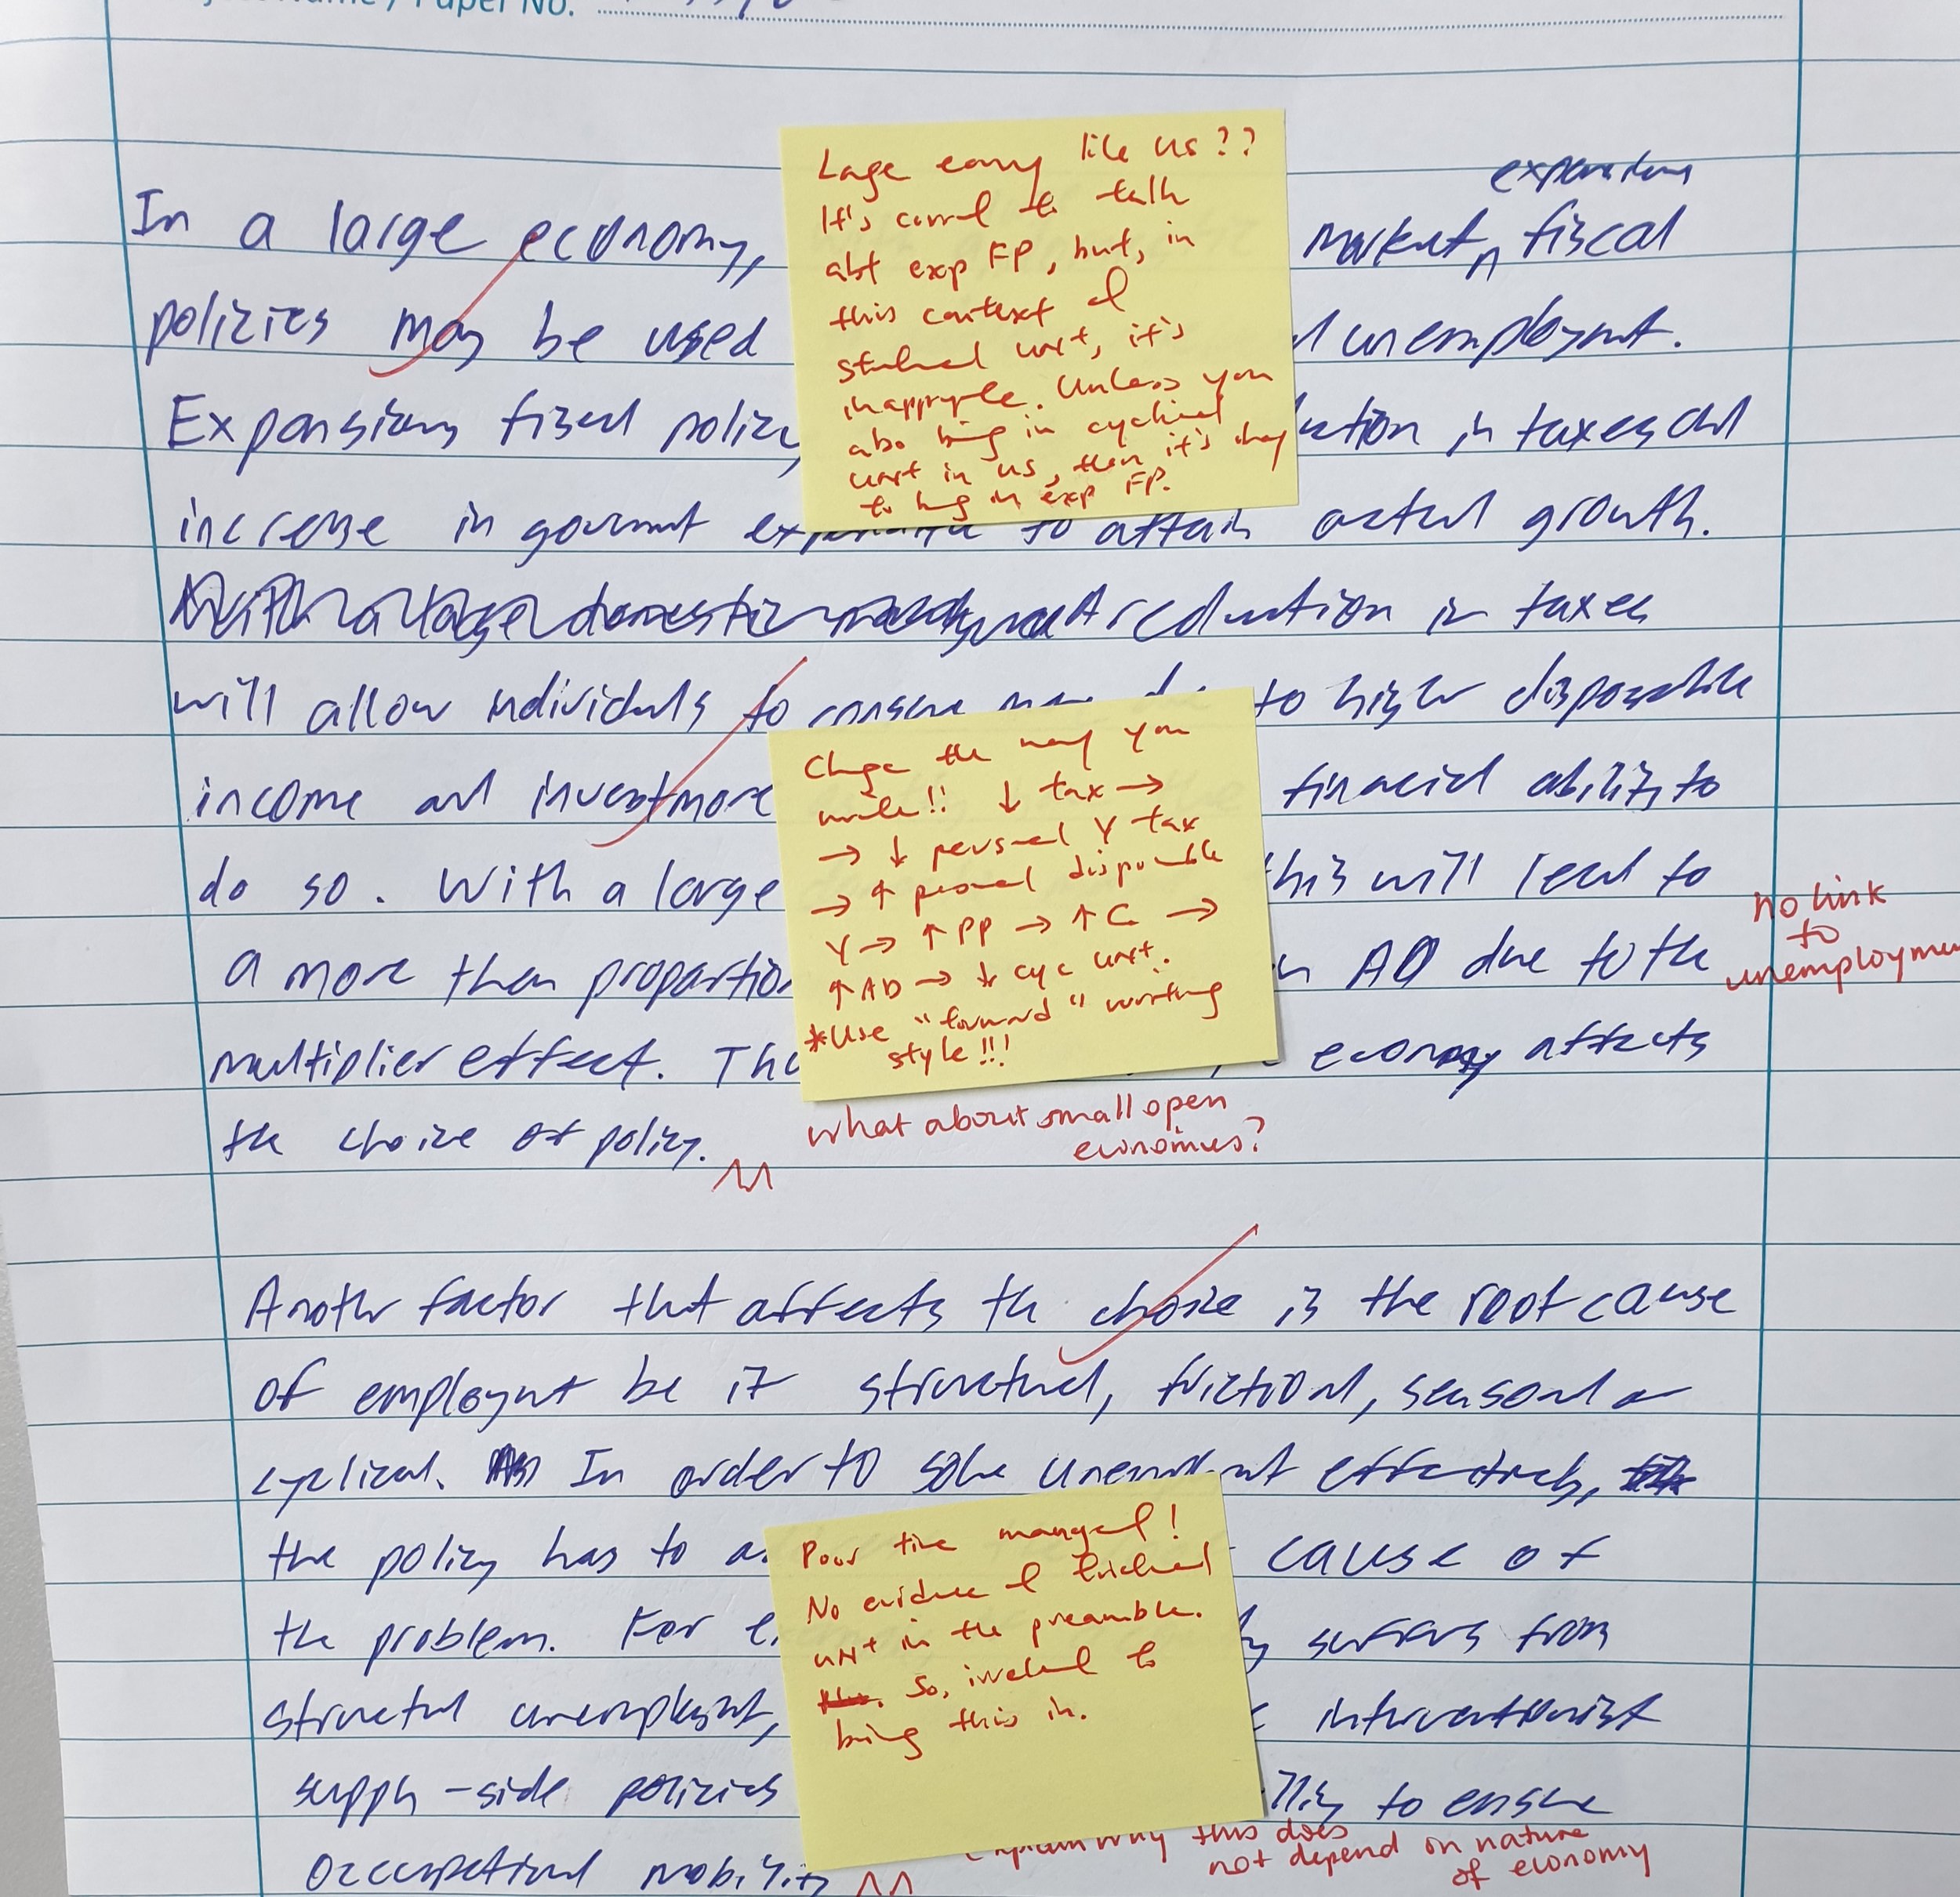 Paper No.
Lage eamy like US??
It's corrct to talk
abt exp FP, but, in
this context of
unt, it's
Unless you
also bing in cyclical
unt in US, then it's okay
to bing in exp FP.
expansionary
In a large economy, market, fiscal
policies may be used unemploymt.
Expansionary fiscal policy, in taxes and
increase in to attain actual growth.
A reduction in taxes
will allow individuals to to higher disposable
income and invest more financial ability to
do so. With a large this will lead to
a more than AD due to the
multiplier effect. economy affects
the choice of policy.
Change the way you
write!! ↓ tax →
→ ↓ personal Y tax
→ ↑ personal disposable
Y → ↑ PP → ↑ C →
↑ AD → ↓ cyc unt.
*Use "forward" writing
style!!!
No link
to
what about small open
economies?
Another factor that affects the choice is the root cause
of employmt be it structural, frictional, seasonal or
cyclical. In order to solve effectively,
the policy has to cause of
the problem. For suffers from
structural unemploymt, interventionist
supply-side policies to ensure
occupational mobility
Poor time
No evidence of frictional
unt in the preamble.
So, irrelevant to
bing this in.
why this does
not depend on nature
of economy